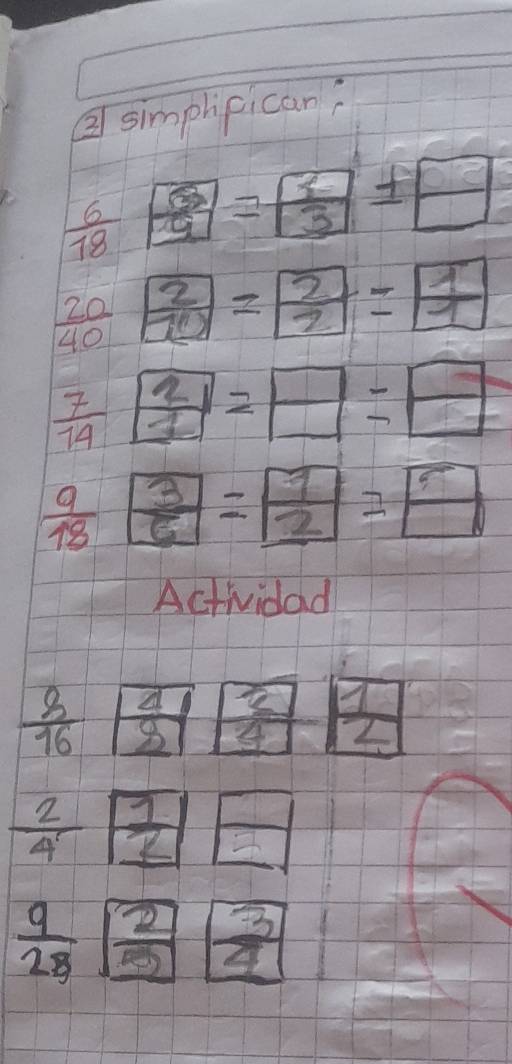 2) simplifican:
6/18 3/9 = 1/3 =
20/40 2/10 = 2/2 = 1/1
7/14 2/1 = =
9/18 3/6 = 1/2 =
Actividad
8/16 4/8 2/4 1/2
2/4 1/2
9/28 3/4